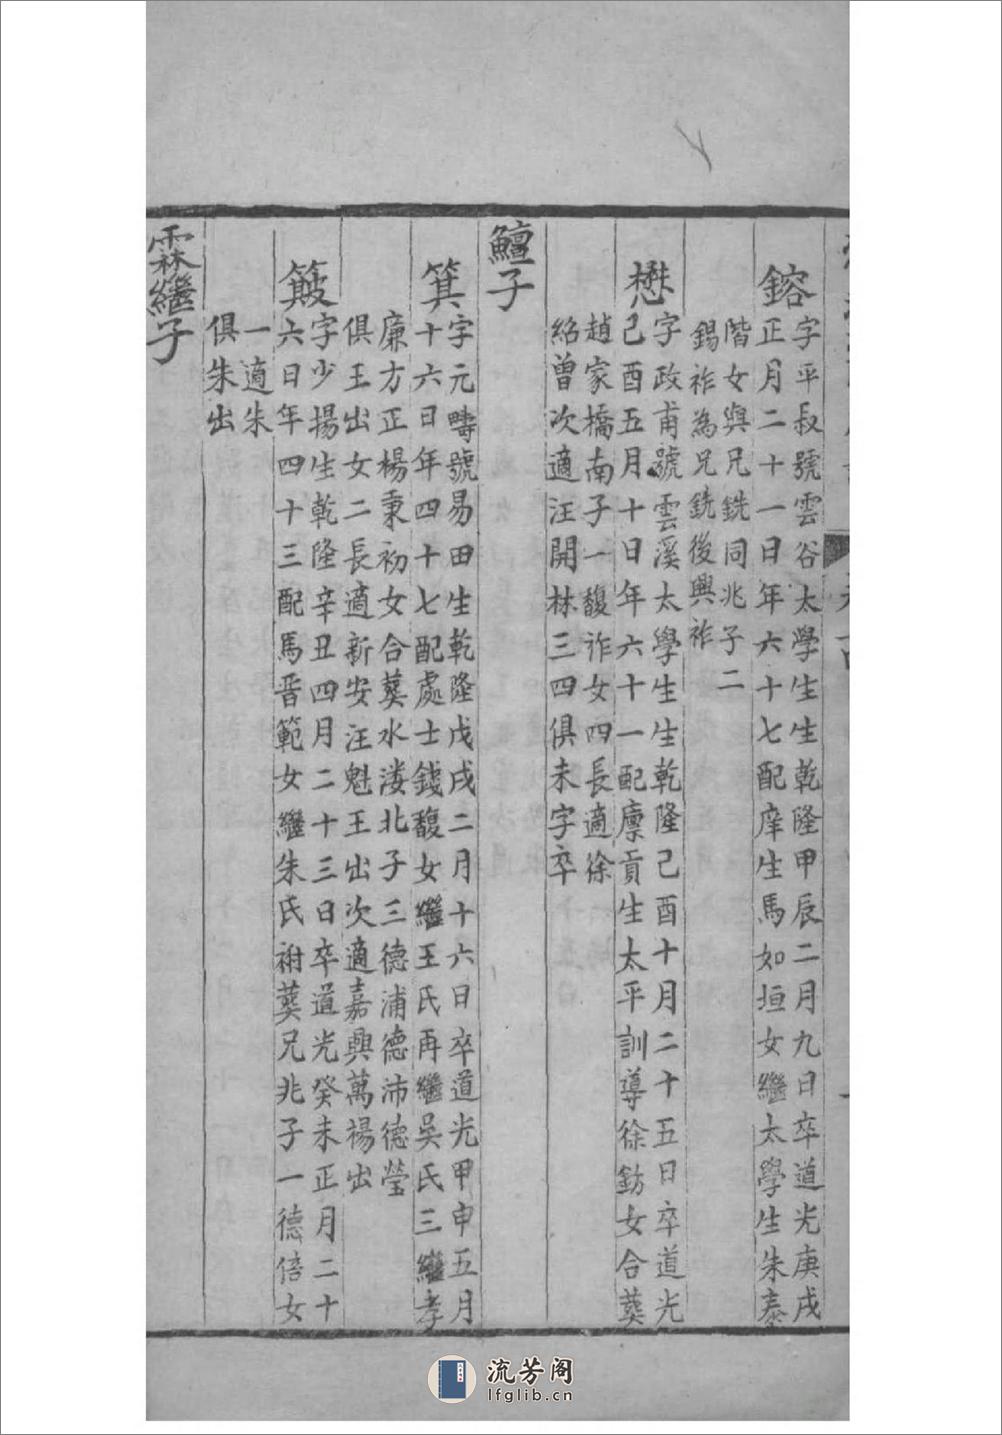 鎔
字平叔號雲谷太學生生乾隆甲辰二月九日卒道光庚戌
正月二十一日年六十七配庠生馬如垣女繼太學生朱泰
階女與兄銑同兆子二
錫祚為兄銑後興祚
懋
字政甫號雲溪太學生生乾隆己酉十月二十五日卒道光
己酉五月十日年六十一配廩貢生太平訓導徐鈁女合葬
趙家橋南子一馥祚女四長適徐
紹曾次適汪開林三四俱未字卒
鱣子
箕
字元疇號易田生乾隆戊戌二月十六日卒道光甲申五月
十六日年四十七配處士錢馥女繼王氏再繼吳氏三繼孝
廉方正楊秉初女合葬水溇北子三德浦德沛德瑩
俱王出女二長適新安汪魁王出次適嘉興萬楊出
簸
字少揚生乾隆辛丑四月二十三日卒道光癸未正月二十
六日年四十三配馬晋範女繼朱氏祔葬兄兆子一德倍女
一適朱
俱朱出
霖繼子
流芳阁
lfglib.cn